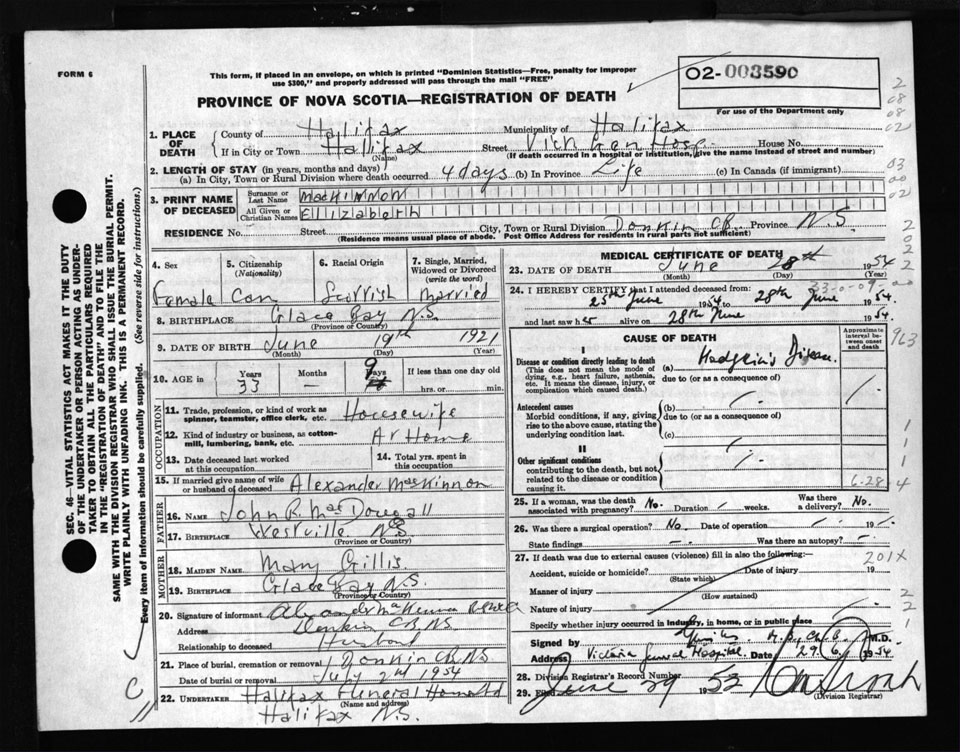 FORM 6
This form, if placed in an envelope, on which is printed "Dominion Statistics—Free, penalty for improper
use $300," and properly addressed will pass through the mail "FREE"
02-003590
For use of the Department only
PROVINCE OF NOVA SCOTIA—REGISTRATION OF DEATH
1. PLACE OF DEATH { County of Halifax Municipality of Halifax
If in City or Town Halifax (Name) Street Vict Gen Hosp. House No.
(If death occurred in a hospital or institution, give the name instead of street and number)
2. LENGTH OF STAY (in years, months and days)
(a) In City, Town or Rural Division where death occurred 4 days (b) In Province Life (c) In Canada (if immigrant)
3. PRINT NAME OF DECEASED Surname or Last Name MacKinnon
All Given or Christian Names Ellizabeth
RESIDENCE No. Street City, Town or Rural Division Donkin C.B. Province N.S.
(Residence means usual place of abode. Post Office Address for residents in rural parts not sufficient)
4. Sex 5. Citizenship (Nationality) 6. Racial Origin 7. Single, Married, Widowed or Divorced (write the word)
Female Can Scottish Married
8. BIRTHPLACE Glace Bay N.S.
(Province or Country)
9. DATE OF BIRTH June 19th 1921
(Month) (Day) (Year)
10. AGE in Years Months Days If less than one day old
33 — 9 hrs. or min.
OCCUPATION
11. Trade, profession, or kind of work as spinner, teamster, office clerk, etc. Housewife
12. Kind of industry or business, as cotton-mill, lumbering, bank, etc. At Home
13. Date deceased last worked at this occupation
14. Total yrs. spent in this occupation
15. If married give name of wife or husband of deceased Alexander MacKinnon
FATHER
16. NAME John R. MacDougall
17. BIRTHPLACE Westville NS
(Province or Country)
MOTHER
18. MAIDEN NAME Mary Gillis
19. BIRTHPLACE Glace Bay N.S.
(Province or Country)
20. Signature of informant
Address Donkin CB, NS
Relationship to deceased Husband
21. Place of burial, cremation or removal Donkin CB. NS
Date of burial or removal July 2nd 1954
22. UNDERTAKER Halifax Funeral Home Ltd
(Name and address)
Halifax N.S.
MEDICAL CERTIFICATE OF DEATH
23. DATE OF DEATH June 28th 1954
(Month) (Day) (Year)
24. I HEREBY CERTIFY that I attended deceased from:
25th June 1954 to 28th June 1954.
and last saw her alive on 28th June 1954.
CAUSE OF DEATH
Approximate interval between onset and death
I
Disease or condition directly leading to death (a) Hodgkin's Disease
(This does not mean the mode of dying, e.g., heart failure, asthenia, etc. It means the disease, injury, or complication which caused death.)
due to (or as a consequence of)
Antecedent causes
Morbid conditions, if any, giving rise to the above cause, stating the underlying condition last.
(b)
due to (or as a consequence of)
(c)
II
Other significant conditions
contributing to the death, but not related to the disease or condition causing it.
6-28
25. If a woman, was the death associated with pregnancy? No. Duration weeks. Was there a delivery? No.
26. Was there a surgical operation? No Date of operation 19
State findings Was there an autopsy?
27. If death was due to external causes (violence) fill in also the following: 201X
Accident, suicide or homicide? (State which) Date of injury 19
Manner of injury
(How sustained)
Nature of injury
Specify whether injury occurred in Industry, in home, or in public place
Signed by M.D.
Address Victoria General Hospital. Date 29.6. 1954.
28. Division Registrar's Record Number
29. Filed June 29 1953
(Division Registrar)
SEC. 46—VITAL STATISTICS ACT MAKES IT THE DUTY
OF THE UNDERTAKER OR PERSON ACTING AS UNDERTAKER TO OBTAIN ALL THE PARTICULARS REQUIRED
IN THE "REGISTRATION OF DEATH" AND TO FILE THE
SAME WITH THE DIVISION REGISTRAR WHO SHALL ISSUE THE BURIAL PERMIT.
WRITE PLAINLY WITH UNFADING INK. THIS IS A PERMANENT RECORD.
Every item of Information should be carefully supplied. (See reverse side for instructions.)
963